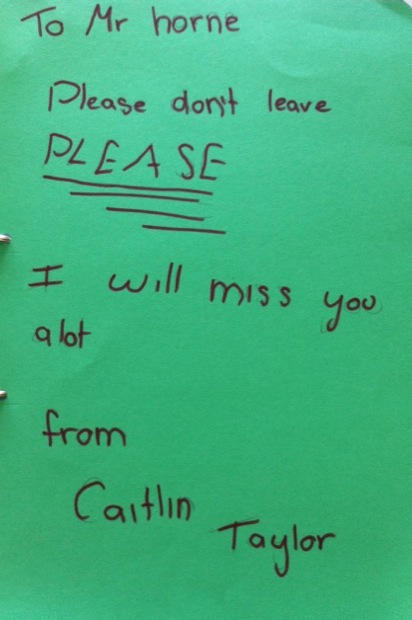 To Mr horne
Please don't leave
PLEASE
I will miss you
a lot
from
Caitlin
Taylor